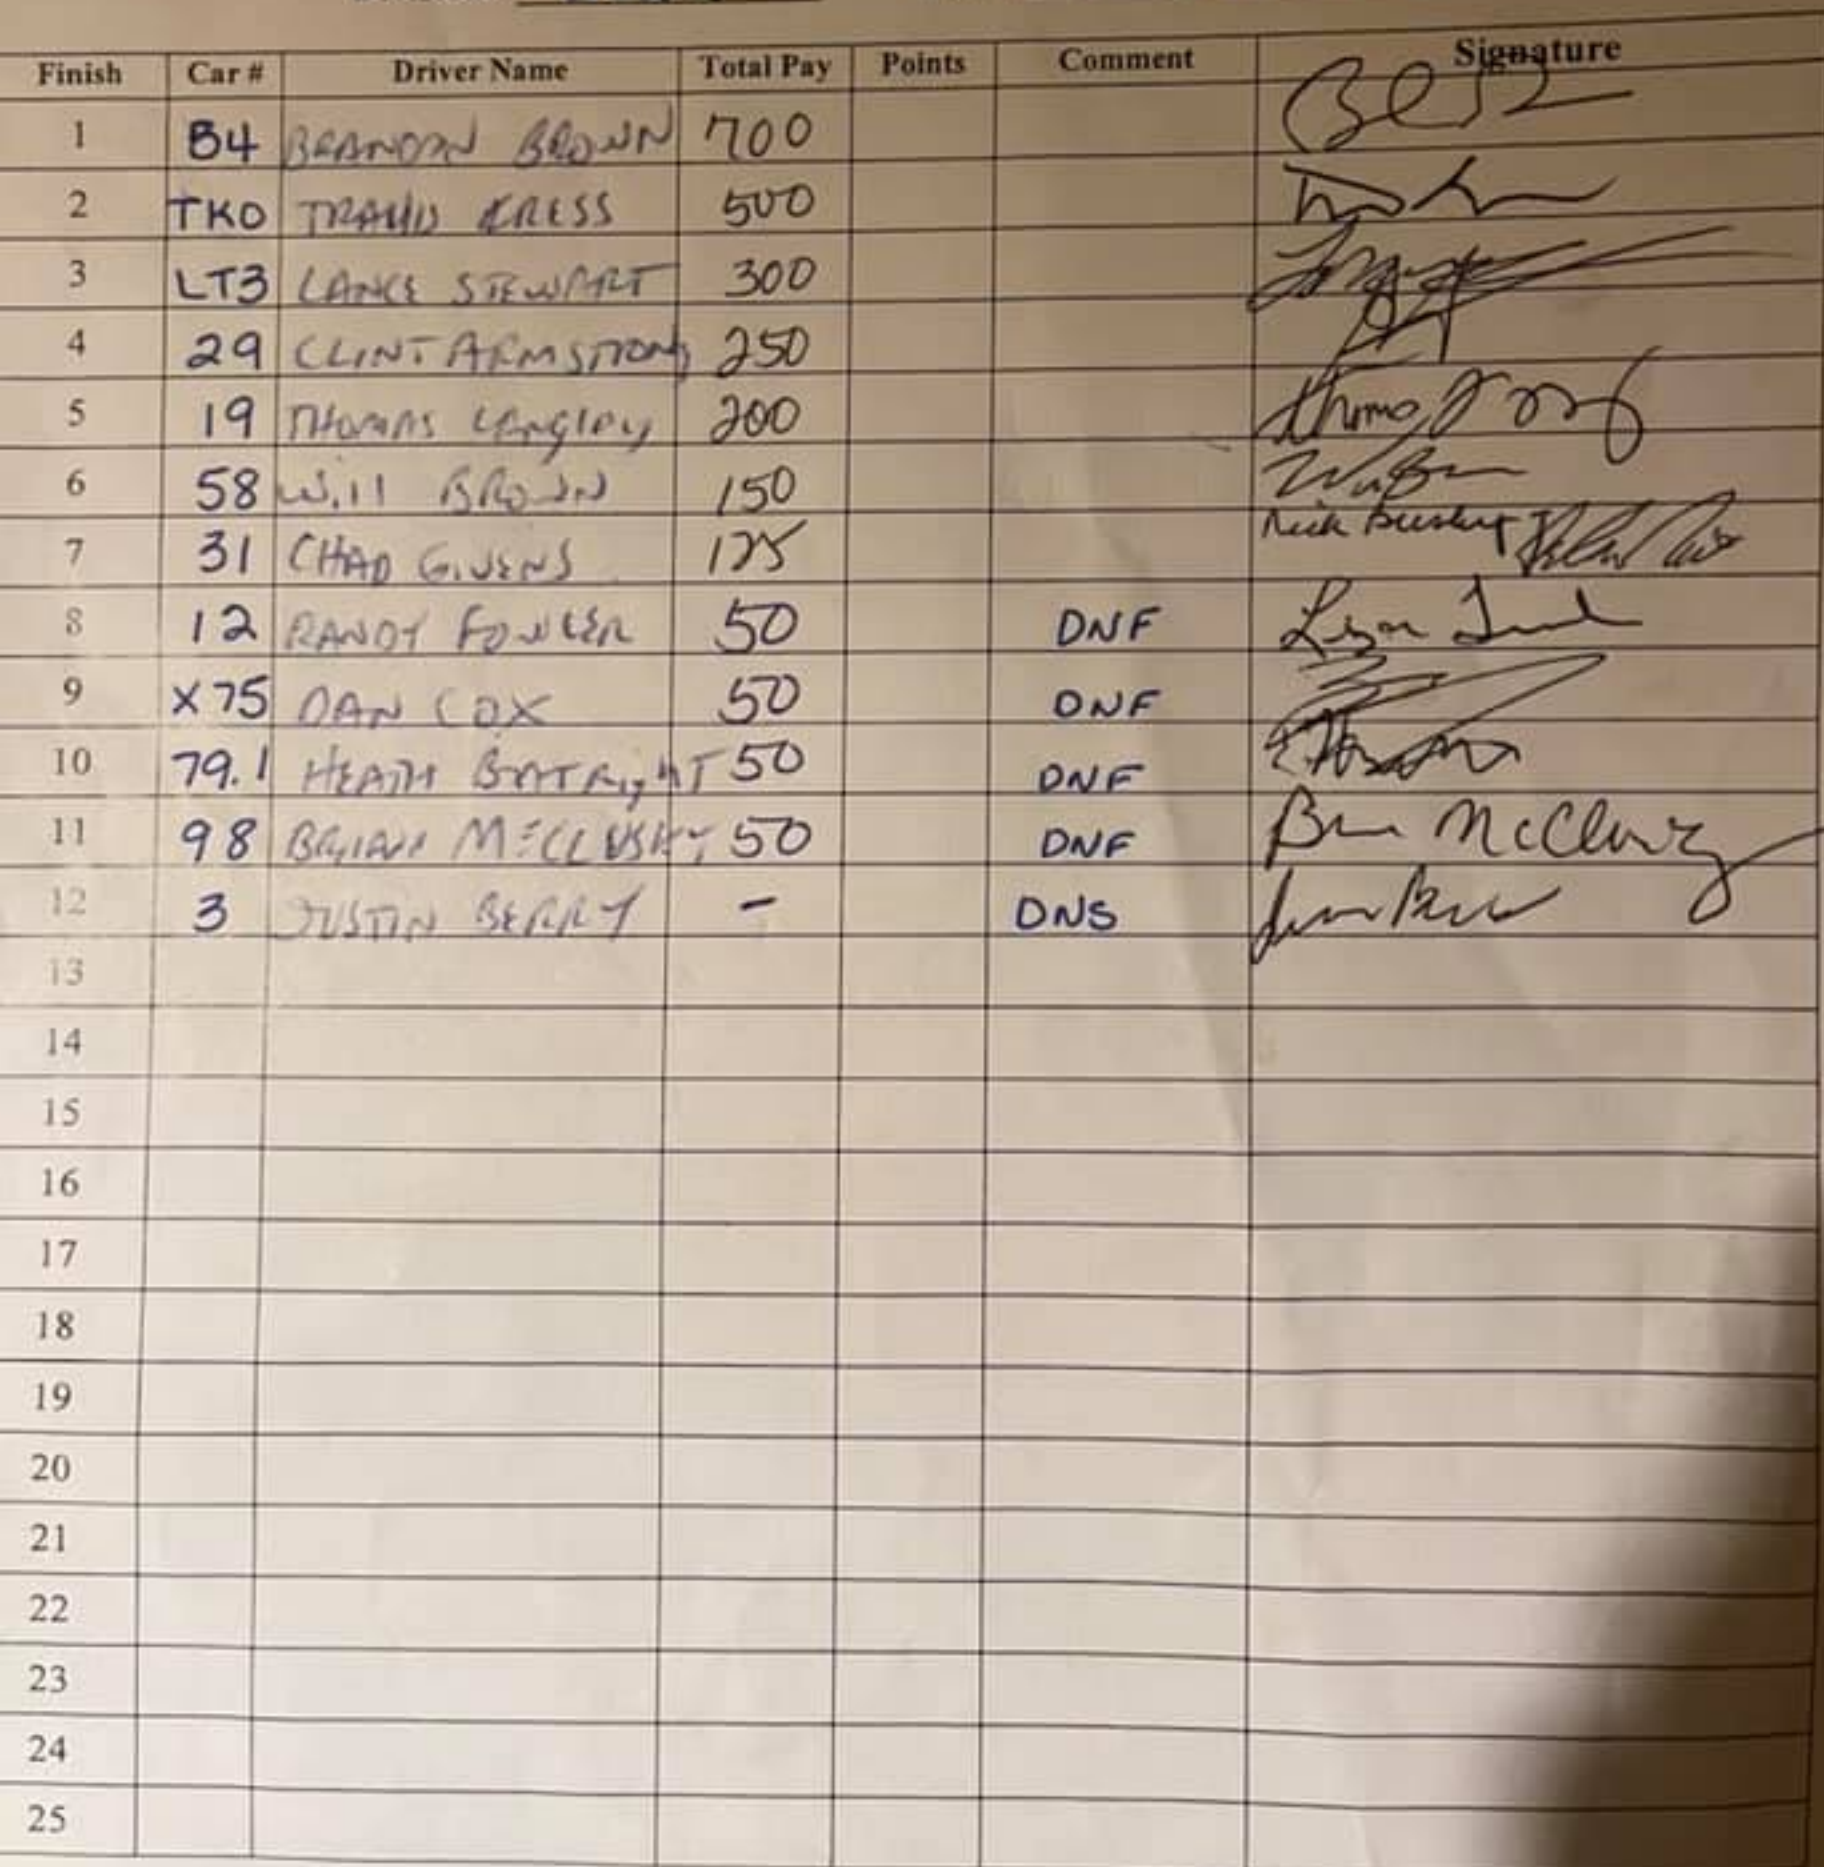 Finish Car # Driver Name Total Pay Points Comment Signature
1 B4 BRANDON BROWN 700
2 TKO TRAVIS KRESS 500
3 LT3 LANCE STEWART 300
4 29 CLINT ARMSTRONG 250
5 19 THOMAS LANGLEY 200
6 58 Will BROWN 150
7 31 CHAD GIVENS 125 Nick
8 12 RANDY FOWLER 50 DNF
9 X75 DAN COX 50 DNF
10 79.1 HEATH BOATRIGHT 50 DNF
11 98 BRIAN McCLUSKY 50 DNF
12 3 JUSTIN BERRY - DNS
13
14
15
16
17
18
19
20
21
22
23
24
25